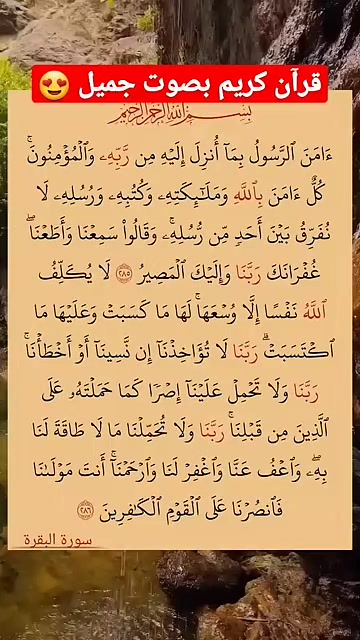 قرآن كريم بصوت جميل 😍
بِسْمِ اللَّهِ الرَّحْمَٰنِ الرَّحِيمِ
ءَامَنَ ٱلرَّسُولُ بِمَآ أُنزِلَ إِلَيْهِ مِن رَّبِّهِۦ وَٱلْمُؤْمِنُونَۚ
كُلٌّ ءَامَنَ بِٱللَّهِ وَمَلَـٰٓئِكَتِهِۦ وَكُتُبِهِۦ وَرُسُلِهِۦ لَا
نُفَرِّقُ بَيْنَ أَحَدٍ مِّن رُّسُلِهِۦۚ وَقَالُوا۟ سَمِعْنَا وَأَطَعْنَاۖ
غُفْرَانَكَ رَبَّنَا وَإِلَيْكَ ٱلْمَصِيرُ ٢٨٥ لَا يُكَلِّفُ
ٱللَّهُ نَفْسًا إِلَّا وُسْعَهَاۚ لَهَا مَا كَسَبَتْ وَعَلَيْهَا مَا
ٱكْتَسَبَتْۗ رَبَّنَا لَا تُؤَاخِذْنَآ إِن نَّسِينَآ أَوْ أَخْطَأْنَاۚ
رَبَّنَا وَلَا تَحْمِلْ عَلَيْنَآ إِصْرًا كَمَا حَمَلْتَهُۥ عَلَى
ٱلَّذِينَ مِن قَبْلِنَاۚ رَبَّنَا وَلَا تُحَمِّلْنَا مَا لَا طَاقَةَ لَنَا
بِهِۦۖ وَٱعْفُ عَنَّا وَٱغْفِرْ لَنَا وَٱرْحَمْنَآۚ أَنتَ مَوْلَىٰنَا
فَٱنصُرْنَا عَلَى ٱلْقَوْمِ ٱلْكَـٰفِرِينَ ٢٨٦
سورة البقرة